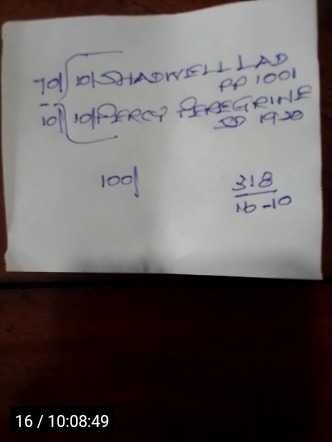 70/ 10/ SHADWELL LAD
PP 1001
10/ 10/ PERCY PEREGRINE
SD 1920
100/
318
16-10
16 / 10:08:49